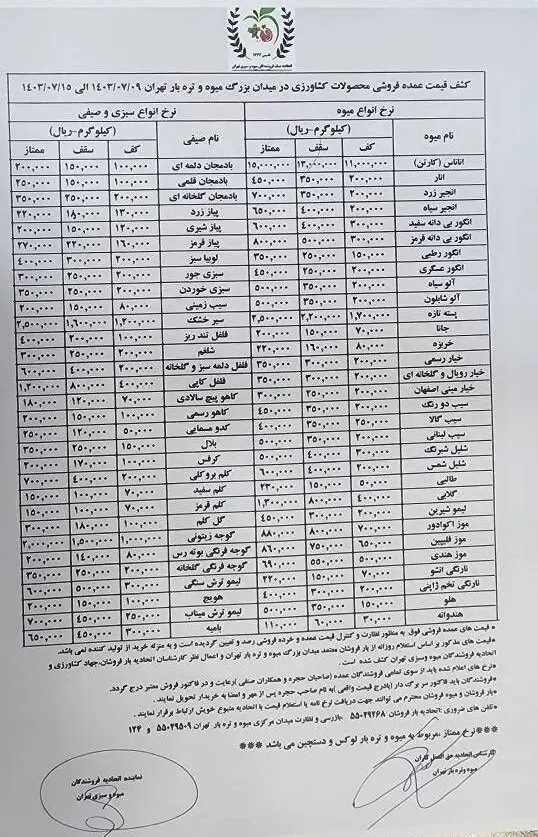 اتحادیه صنف فروشندگان میوه و سبزی تهران
کشف قیمت عمده فروشی محصولات کشاورزی در میدان بزرگ میوه و تره بار تهران ۱۴۰۳/۰۷/۰۹ الی ۱۴۰۳/۰۷/۱۵
نرخ انواع میوه نرخ انواع سبزی و صیفی
نام میوه (کیلوگرم-ریال) نام صیفی (کیلوگرم-ریال)
کف سقف ممتاز کف سقف ممتاز
اناناس (کارتن) ۱۱,۰۰۰,۰۰۰ ۱۳,۰۰۰,۰۰۰ ۱۵,۰۰۰,۰۰۰ بادمجان دلمه ای ۱۰۰,۰۰۰ ۱۵۰,۰۰۰ ۲۰۰,۰۰۰
انار ۲۰۰,۰۰۰ ۳۵۰,۰۰۰ ۴۵۰,۰۰۰ بادمجان قلمی ۱۰۰,۰۰۰ ۱۵۰,۰۰۰ ۲۵۰,۰۰۰
انجیر زرد ۲۰۰,۰۰۰ ۳۵۰,۰۰۰ ۷۰۰,۰۰۰ بادمجان گلخانه ای ۲۰۰,۰۰۰ ۲۵۰,۰۰۰ ۳۵۰,۰۰۰
انجیر سیاه ۲۰۰,۰۰۰ ۴۰۰,۰۰۰ ۶۵۰,۰۰۰ پیاز زرد ۱۳۰,۰۰۰ ۱۸۰,۰۰۰ ۲۲۰,۰۰۰
انگور بی دانه سفید ۳۰۰,۰۰۰ ۴۰۰,۰۰۰ ۶۰۰,۰۰۰ پیاز شیری ۱۲۰,۰۰۰ ۱۵۰,۰۰۰ ۲۰۰,۰۰۰
انگور بی دانه قرمز ۳۰۰,۰۰۰ ۵۰۰,۰۰۰ ۸۰۰,۰۰۰ پیاز قرمز ۱۶۰,۰۰۰ ۲۲۰,۰۰۰ ۲۷۰,۰۰۰
انگور رطبی ۱۵۰,۰۰۰ ۲۵۰,۰۰۰ ۳۵۰,۰۰۰ لوبیا سبز ۲۰۰,۰۰۰ ۳۰۰,۰۰۰ ۴۰۰,۰۰۰
انگور عسگری ۲۰۰,۰۰۰ ۲۵۰,۰۰۰ ۴۵۰,۰۰۰ سبزی جور ۲۰۰,۰۰۰ ۲۵۰,۰۰۰ ۳۰۰,۰۰۰
آلو سیاه ۲۰۰,۰۰۰ ۳۵۰,۰۰۰ ۵۰۰,۰۰۰ سبزی خوردن ۲۰۰,۰۰۰ ۲۵۰,۰۰۰ ۳۵۰,۰۰۰
آلو شابلون ۲۰۰,۰۰۰ ۳۵۰,۰۰۰ ۵۰۰,۰۰۰ سیب زمینی ۸۰,۰۰۰ ۱۵۰,۰۰۰ ۲۰۰,۰۰۰
پسته تازه ۱,۷۰۰,۰۰۰ ۲,۲۰۰,۰۰۰ ۲,۵۰۰,۰۰۰ سیر خشک ۱,۲۰۰,۰۰۰ ۱,۶۰۰,۰۰۰ ۲,۵۰۰,۰۰۰
جانا ۷۰,۰۰۰ ۱۵۰,۰۰۰ ۲۰۰,۰۰۰ فلفل تند ریز ۱۰۰,۰۰۰ ۲۰۰,۰۰۰ ۴۰۰,۰۰۰
خربزه ۸۰,۰۰۰ ۱۶۰,۰۰۰ ۲۲۰,۰۰۰ شلغم ۲۰۰,۰۰۰ ۲۵۰,۰۰۰ ۳۰۰,۰۰۰
خیار رسمی ۲۰۰,۰۰۰ ۳۰۰,۰۰۰ ۳۵۰,۰۰۰ فلفل دلمه سبز و گلخانه ۲۰۰,۰۰۰ ۴۰۰,۰۰۰ ۶۰۰,۰۰۰
خیار رویال و گلخانه ای ۲۰۰,۰۰۰ ۳۰۰,۰۰۰ ۳۵۰,۰۰۰ فلفل کاپی ۴۰۰,۰۰۰ ۸۰۰,۰۰۰ ۱,۲۰۰,۰۰۰
خیار مینی اصفهان ۲۰۰,۰۰۰ ۲۵۰,۰۰۰ ۳۰۰,۰۰۰ کاهو پیچ سالادی ۷۰,۰۰۰ ۱۲۰,۰۰۰ ۱۸۰,۰۰۰
سیب دو رنگ ۲۰۰,۰۰۰ ۳۵۰,۰۰۰ ۴۵۰,۰۰۰ کاهو رسمی ۱۰۰,۰۰۰ ۱۵۰,۰۰۰ ۲۰۰,۰۰۰
سیب گالا ۲۵۰,۰۰۰ ۳۵۰,۰۰۰ ۴۰۰,۰۰۰ کدو مسمایی ۵۰,۰۰۰ ۱۲۰,۰۰۰ ۲۵۰,۰۰۰
سیب لبنانی ۲۰۰,۰۰۰ ۳۵۰,۰۰۰ ۵۰۰,۰۰۰ بلال ۱۵۰,۰۰۰ ۲۵۰,۰۰۰ ۳۵۰,۰۰۰
شلیل شبرنگ ۲۰۰,۰۰۰ ۴۰۰,۰۰۰ ۵۰۰,۰۰۰ کرفس ۱۰۰,۰۰۰ ۱۷۰,۰۰۰ ۲۰۰,۰۰۰
شلیل شمس ۲۰۰,۰۰۰ ۴۰۰,۰۰۰ ۶۰۰,۰۰۰ کلم بروکلی ۲۰۰,۰۰۰ ۴۰۰,۰۰۰ ۷۰۰,۰۰۰
طالبی ۵۰,۰۰۰ ۱۵۰,۰۰۰ ۲۳۰,۰۰۰ کلم سفید ۷۰,۰۰۰ ۱۰۰,۰۰۰ ۱۵۰,۰۰۰
گلابی ۴۰۰,۰۰۰ ۸۰۰,۰۰۰ ۱,۳۰۰,۰۰۰ کلم قرمز ۷۰,۰۰۰ ۱۰۰,۰۰۰ ۱۵۰,۰۰۰
لیمو شیرین ۲۰۰,۰۰۰ ۳۰۰,۰۰۰ ۴۵۰,۰۰۰ گل کلم ۱۰۰,۰۰۰ ۱۸۰,۰۰۰ ۳۰۰,۰۰۰
موز اکوادور ۷۰۰,۰۰۰ ۸۰۰,۰۰۰ ۸۸۰,۰۰۰ گوجه زیتونی ۱,۰۰۰,۰۰۰ ۱,۵۰۰,۰۰۰ ۲,۰۰۰,۰۰۰
موز فلیپین ۶۵۰,۰۰۰ ۷۵۰,۰۰۰ ۸۶۰,۰۰۰ گوجه فرنگی بوته رس ۸۰,۰۰۰ ۱۴۰,۰۰۰ ۲۰۰,۰۰۰
موز هندی ۵۰۰,۰۰۰ ۵۵۰,۰۰۰ ۶۹۰,۰۰۰ گوجه فرنگی گلخانه ۲۰۰,۰۰۰ ۲۵۰,۰۰۰ ۳۵۰,۰۰۰
نارنگی انشو ۷۰,۰۰۰ ۱۵۰,۰۰۰ ۲۲۰,۰۰۰ لیمو ترش سنگی ۳۰۰,۰۰۰ ۵۰۰,۰۰۰ ۶۰۰,۰۰۰
نارنگی تخم ژاپنی ۲۰۰,۰۰۰ ۳۰۰,۰۰۰ ۴۰۰,۰۰۰ هویج ۱۰۰,۰۰۰ ۱۵۰,۰۰۰ ۲۰۰,۰۰۰
هلو ۱۵۰,۰۰۰ ۳۵۰,۰۰۰ ۵۰۰,۰۰۰ لیمو ترش میناب ۳۰۰,۰۰۰ ۴۵۰,۰۰۰ ۷۰۰,۰۰۰
هندوانه ۳۰,۰۰۰ ۶۰,۰۰۰ ۱۱۰,۰۰۰ بامیه ۳۰۰,۰۰۰ ۴۵۰,۰۰۰ ۶۵۰,۰۰۰
*قیمت های عمده فروشی فوق به منظور نظارت و کنترل قیمت عمده و خرده فروشی رصد و تعیین گردیده است و به منزله خرید از تولید کننده نمی باشد.
*قیمت های مذکور بر اساس استعلام روزانه از بار فروشان معتمد میدان بزرگ میوه و تره بار تهران و اعمال نظر کارشناسان اتحادیه بار فروشان،جهاد کشاورزی و
اتحادیه فروشندگان میوه وسبزی تهران کشف شده است .
*نرخ های اعلام شده باید از سوی تمامی فروشندگان عمده (صاحبان حجره و همکاران صنفی )رعایت و در فاکتور فروش معتبر درج گردد.
*فروشندگان باید فاکتور سر برگ دار (بادرج قیمت واقعی )به نام صاحب حجره پس از مهر و امضا به خریدار تحویل نمایند .
*بار فروشان و میوه فروشان محترم می توانند جهت دریافت نرخ نامه یا استعلام قیمت با اتحادیه متبوع خویش ارتباط برقرار نمایند .
*تلفن های ضروری :اتحادیه بار فروشان ۵۵۰۲۹۲۶۸ .بازرسی و نظارت میدان مرکزی میوه و تره بار تهران ۵۵۰۲۹۵۰۹ و ۱۲۴
***نرخ ممتاز ،مربوط به میوه و تره بار لوکس و دستچین می باشد ***
کارشناس اتحادیه حق العمل کاران
میوه و تره بار تهران
نماینده اتحادیه فروشندگان
میوه و سبزی تهران